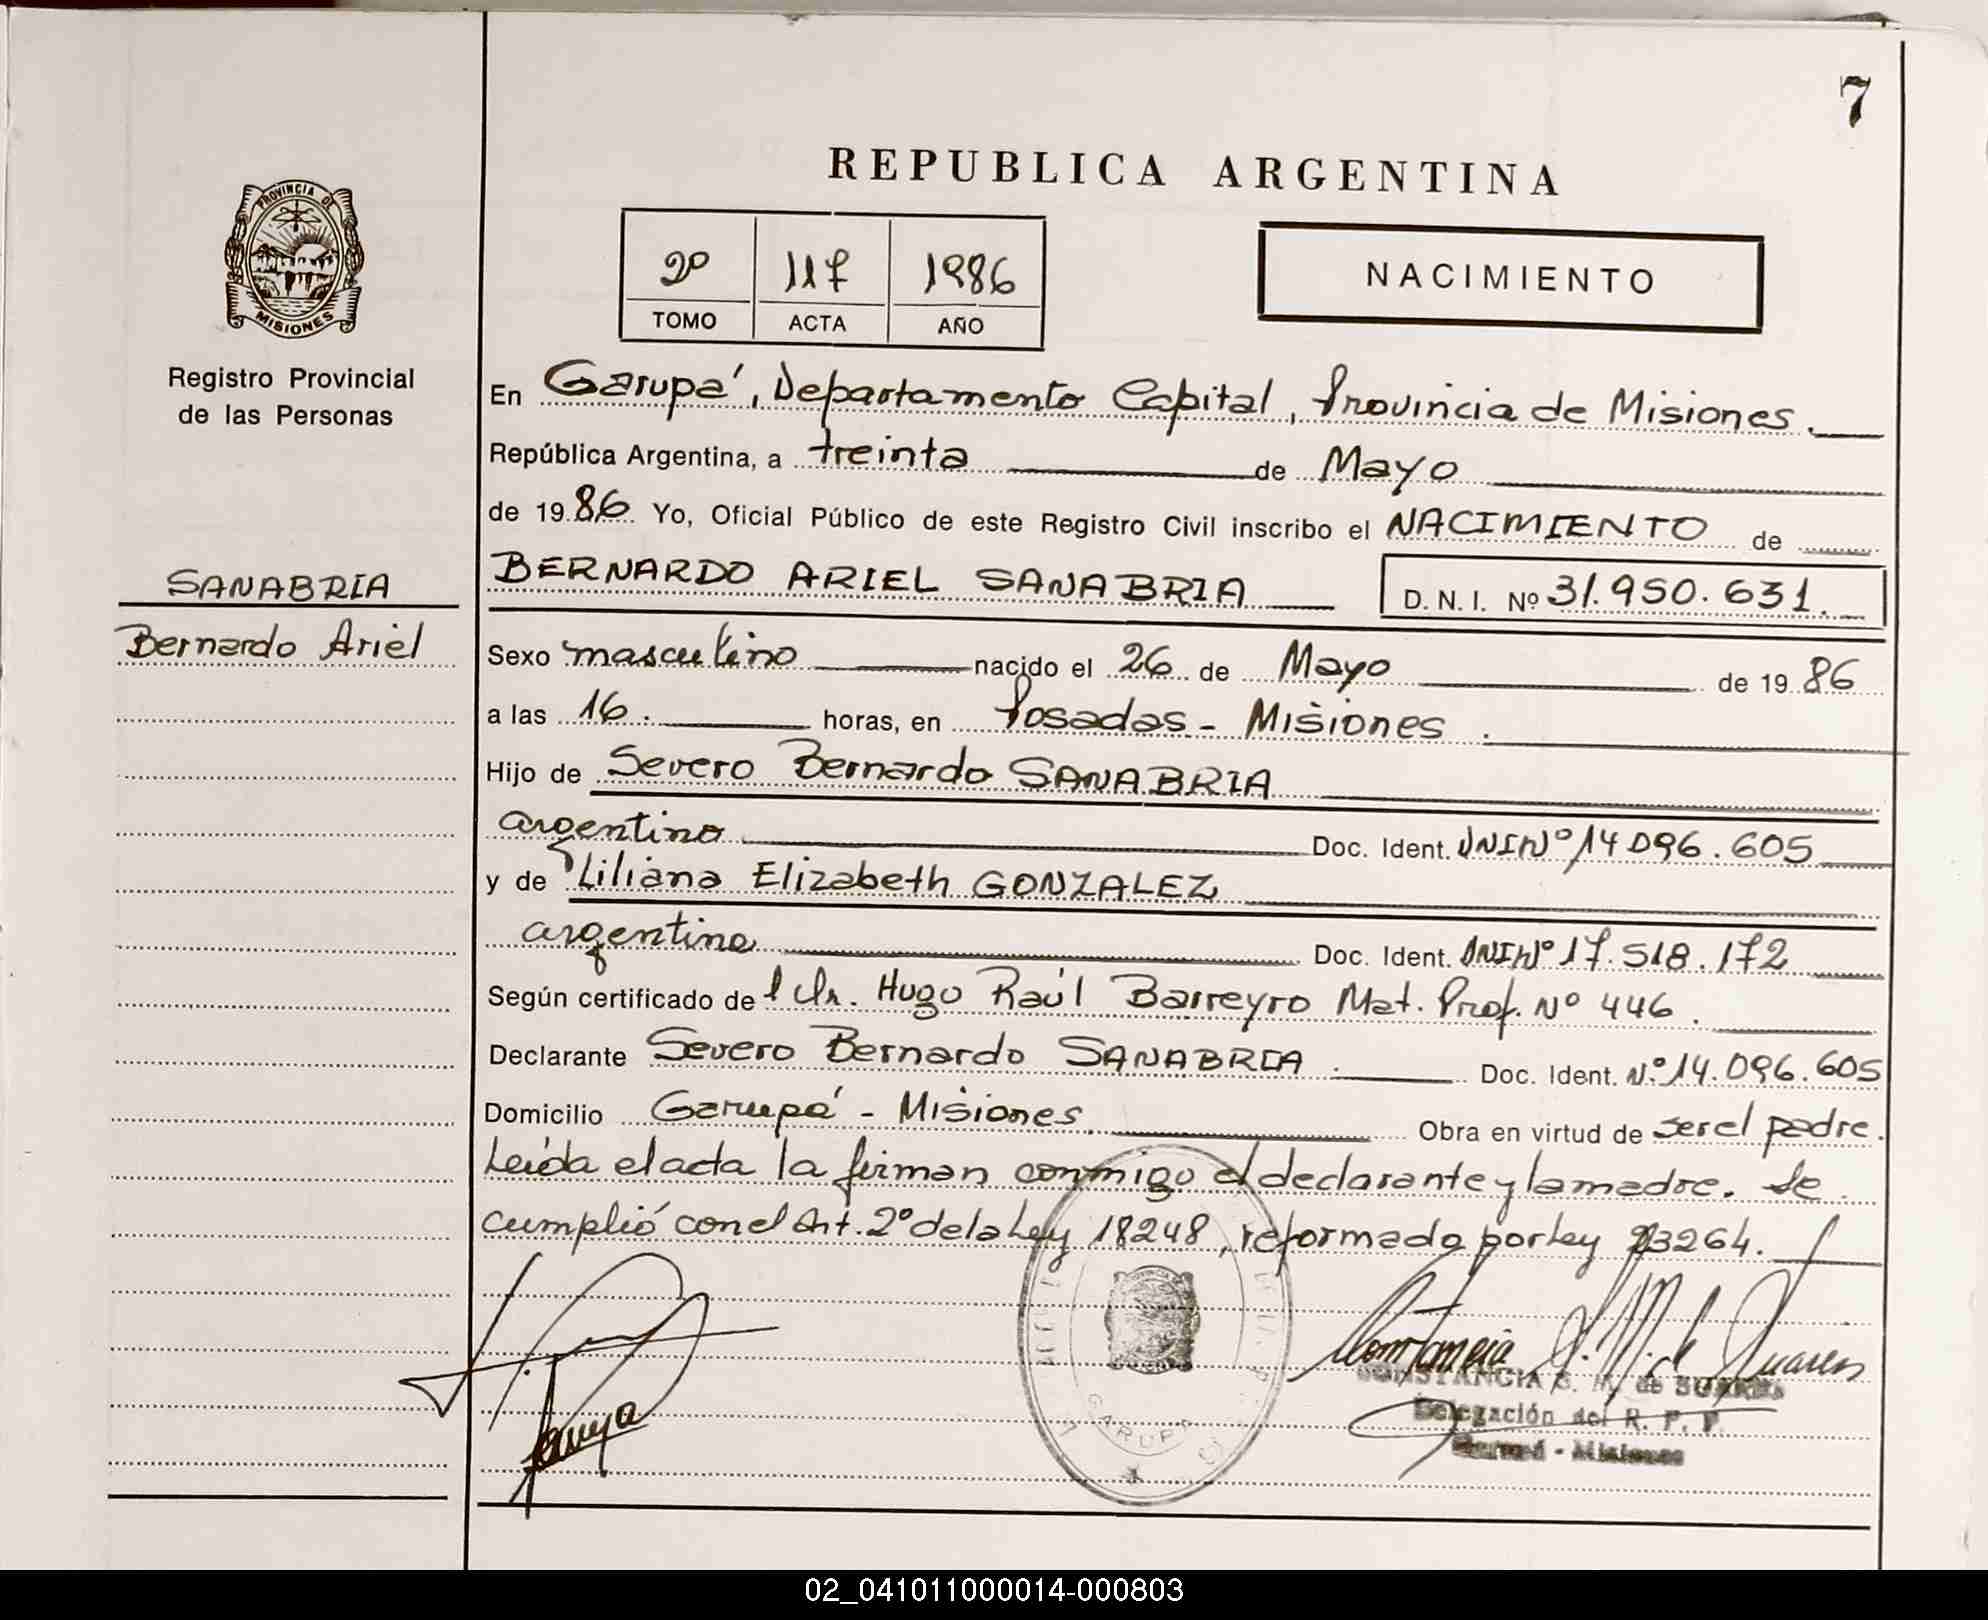 7
REPUBLICA ARGENTINA
PROVINCIA DE
MISIONES
Registro Provincial
de las Personas
2º 117 1986
TOMO ACTA AÑO
NACIMIENTO
En Garupá, Departamento Capital, Provincia de Misiones.
República Argentina, a treinta de Mayo
de 1986 Yo, Oficial Público de este Registro Civil inscribo el NACIMIENTO de
SANABRIA
Bernardo Ariel
BERNARDO ARIEL SANABRIA D.N.I. Nº 31.950.631.
Sexo masculino nacido el 26 de Mayo de 1986
a las 16. horas, en Posadas - Misiones.
Hijo de Severo Bernardo SANABRIA
argentino Doc. Ident. DNI Nº 14.096.605
y de Liliana Elizabeth GONZALEZ
argentina Doc. Ident. DNI Nº 17.518.172
Según certificado de l Dr. Hugo Raúl Barreyro Mat. Prof. Nº 446.
Declarante Severo Bernardo SANABRIA. Doc. Ident. Nº 14.096.605
Domicilio Garupá - Misiones. Obra en virtud de ser el padre.
Leída el acta la firman conmigo el declarante y la madre. Se
cumplió con el Art. 2º de la Ley 18248, reformado por Ley 23264.
GARUPA
Constancia S. M. de Suarez
CONSTANCIA S. M. de SUAREZ
Delegación del R. P. P.
Garupá - Misiones
02_041011000014-000803